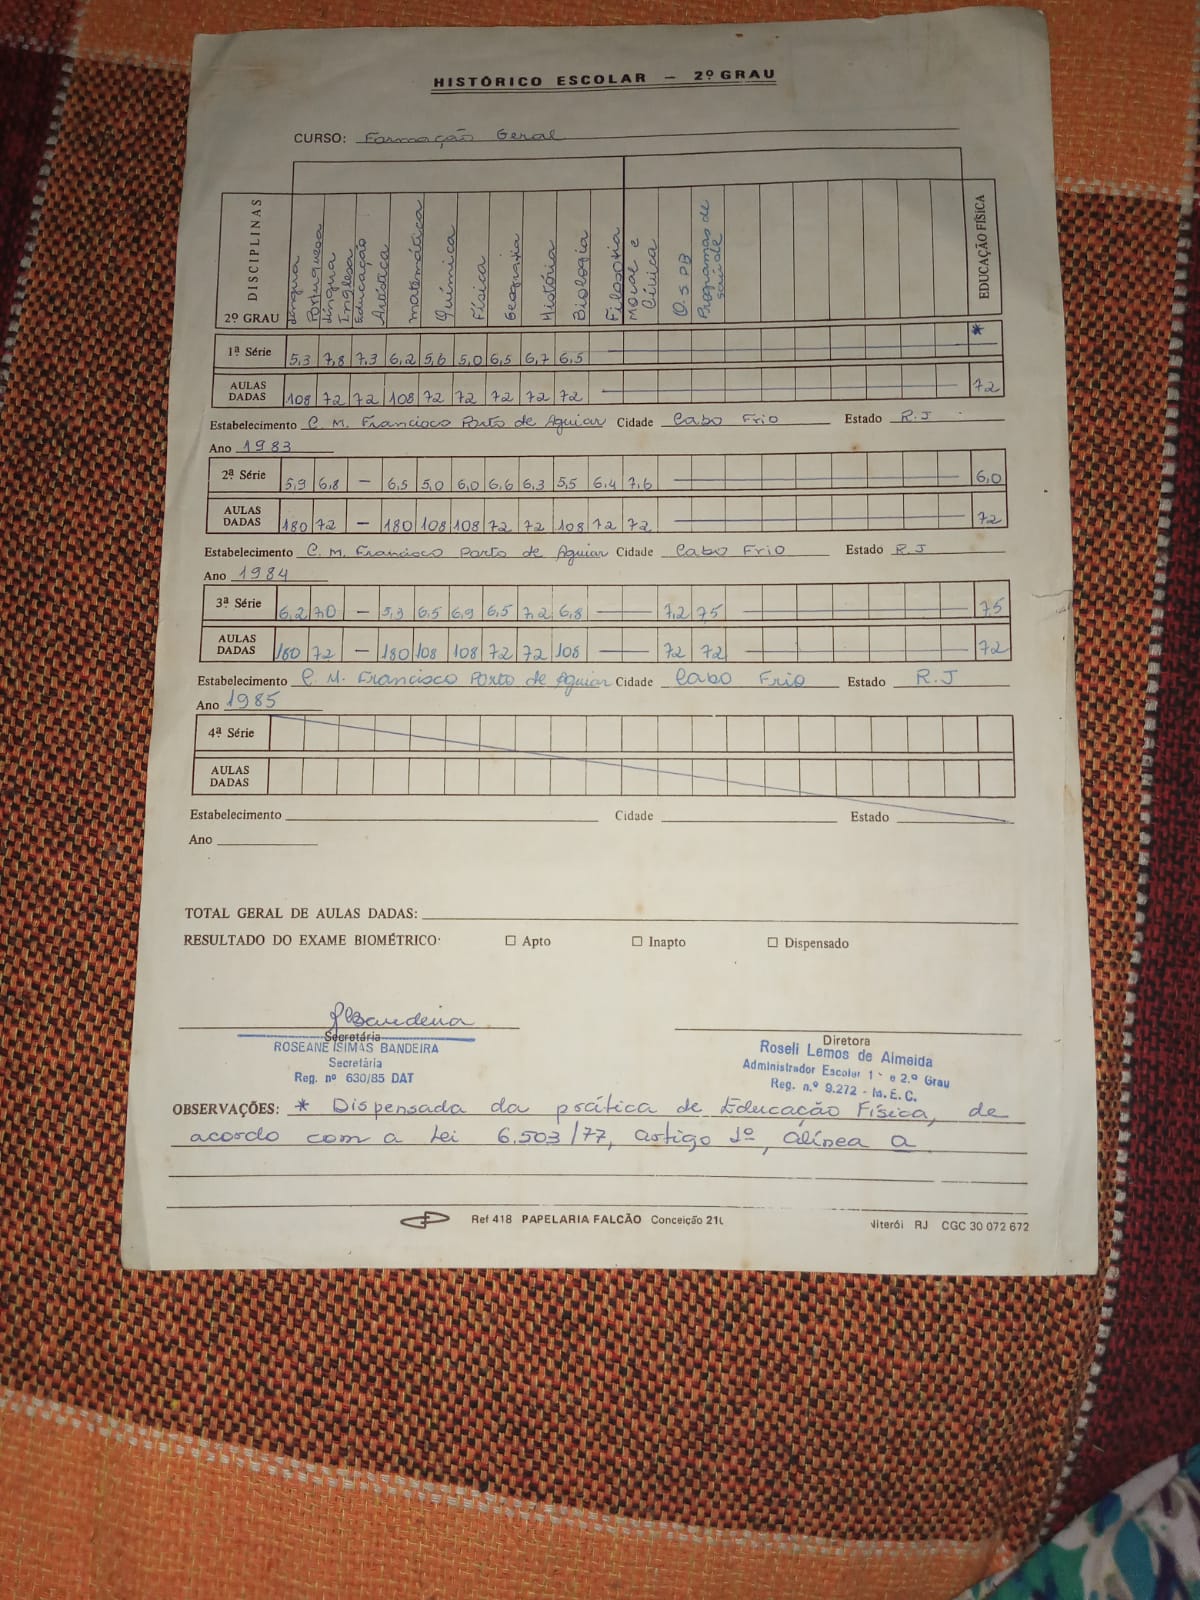 HISTÓRICO ESCOLAR — 2º GRAU
CURSO: Formação Geral
DISCIPLINAS
Língua Portuguesa
Língua Inglesa
Educação Artística
Matemática
Química
Física
Geografia
História
Biologia
Filosofia
Moral e Cívica
O.S.P.B
Programas de saúde
EDUCAÇÃO FÍSICA
2º GRAU
1ª Série 5,3 7,8 7,3 6,2 5,6 5,0 6,5 6,7 6,5 — *
AULAS DADAS 108 72 72 108 72 72 72 72 72 — 72
Estabelecimento C. M. Francisco Porto de Aguiar Cidade Cabo Frio Estado R.J
Ano 1983
2ª Série 5,9 6,8 — 6,5 5,0 6,0 6,6 6,3 5,5 6,4 7,6 — 6,0
AULAS DADAS 180 72 — 180 108 108 72 72 108 72 72 — 72
Estabelecimento C. M. Francisco Porto de Aguiar Cidade Cabo Frio Estado R.J
Ano 1984
3ª Série 6,2 7,0 — 5,3 6,5 6,9 6,5 7,2 6,8 — 7,2 7,5 — 7,5
AULAS DADAS 180 72 — 180 108 108 72 72 108 — 72 72 — 72
Estabelecimento C. M. Francisco Porto de Aguiar Cidade Cabo Frio Estado R.J
Ano 1985
4ª Série
AULAS DADAS
Estabelecimento Cidade Estado
Ano
TOTAL GERAL DE AULAS DADAS:
RESULTADO DO EXAME BIOMÉTRICO: ☐ Apto ☐ Inapto ☐ Dispensado
Bandeira
Secretária
ROSEANE ISIMAS BANDEIRA
Secretária
Reg. nº 630/85 DAT
Diretora
Roseli Lemos de Almeida
Administrador Escolar 1º e 2.º Grau
Reg. n.º 9.272 - M. E. C.
OBSERVAÇÕES: * Dispensada da prática de Educação Física, de
acordo com a Lei 6.503/77, artigo 1º, alínea a
Ref 418 PAPELARIA FALCÃO Conceição 210 Niterói RJ CGC 30 072 672